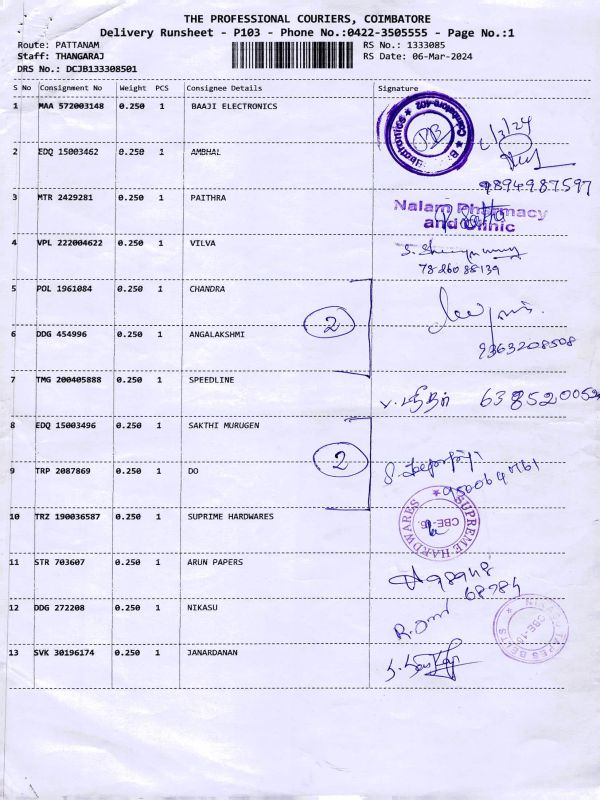 THE PROFESSIONAL COURIERS, COIMBATORE
Delivery Runsheet - P103 - Phone No.:0422-3505555 - Page No.:1
Route: PATTANAM RS No.: 1333085
Staff: THANGARAJ RS Date: 06-Mar-2024
DRS No.: DCJB133308501
S No Consignment No Weight PCS Consignee Details Signature
1 MAA 572003148 0.250 1 BAAJI ELECTRONICS
6/3/24
2 EDQ 15003462 0.250 1 AMBHAL
9894987597
3 MTR 2429281 0.250 1 PAITHRA
Nalam Pharmacy
and Clinic
4 VPL 222004622 0.250 1 VILVA
78260 88139
5 POL 1961084 0.250 1 CHANDRA
2
6 DDG 454996 0.250 1 ANGALAKSHMI
9363208508
7 TMG 200405888 0.250 1 SPEEDLINE
638520052
8 EDQ 15003496 0.250 1 SAKTHI MURUGEN
2
9 TRP 2087869 0.250 1 DO
10 TRZ 190036587 0.250 1 SUPRIME HARDWARES
SUPREME HARDWARES
11 STR 703607 0.250 1 ARUN PAPERS
12 DDG 272208 0.250 1 NIKASU
13 SVK 30196174 0.250 1 JANARDANAN